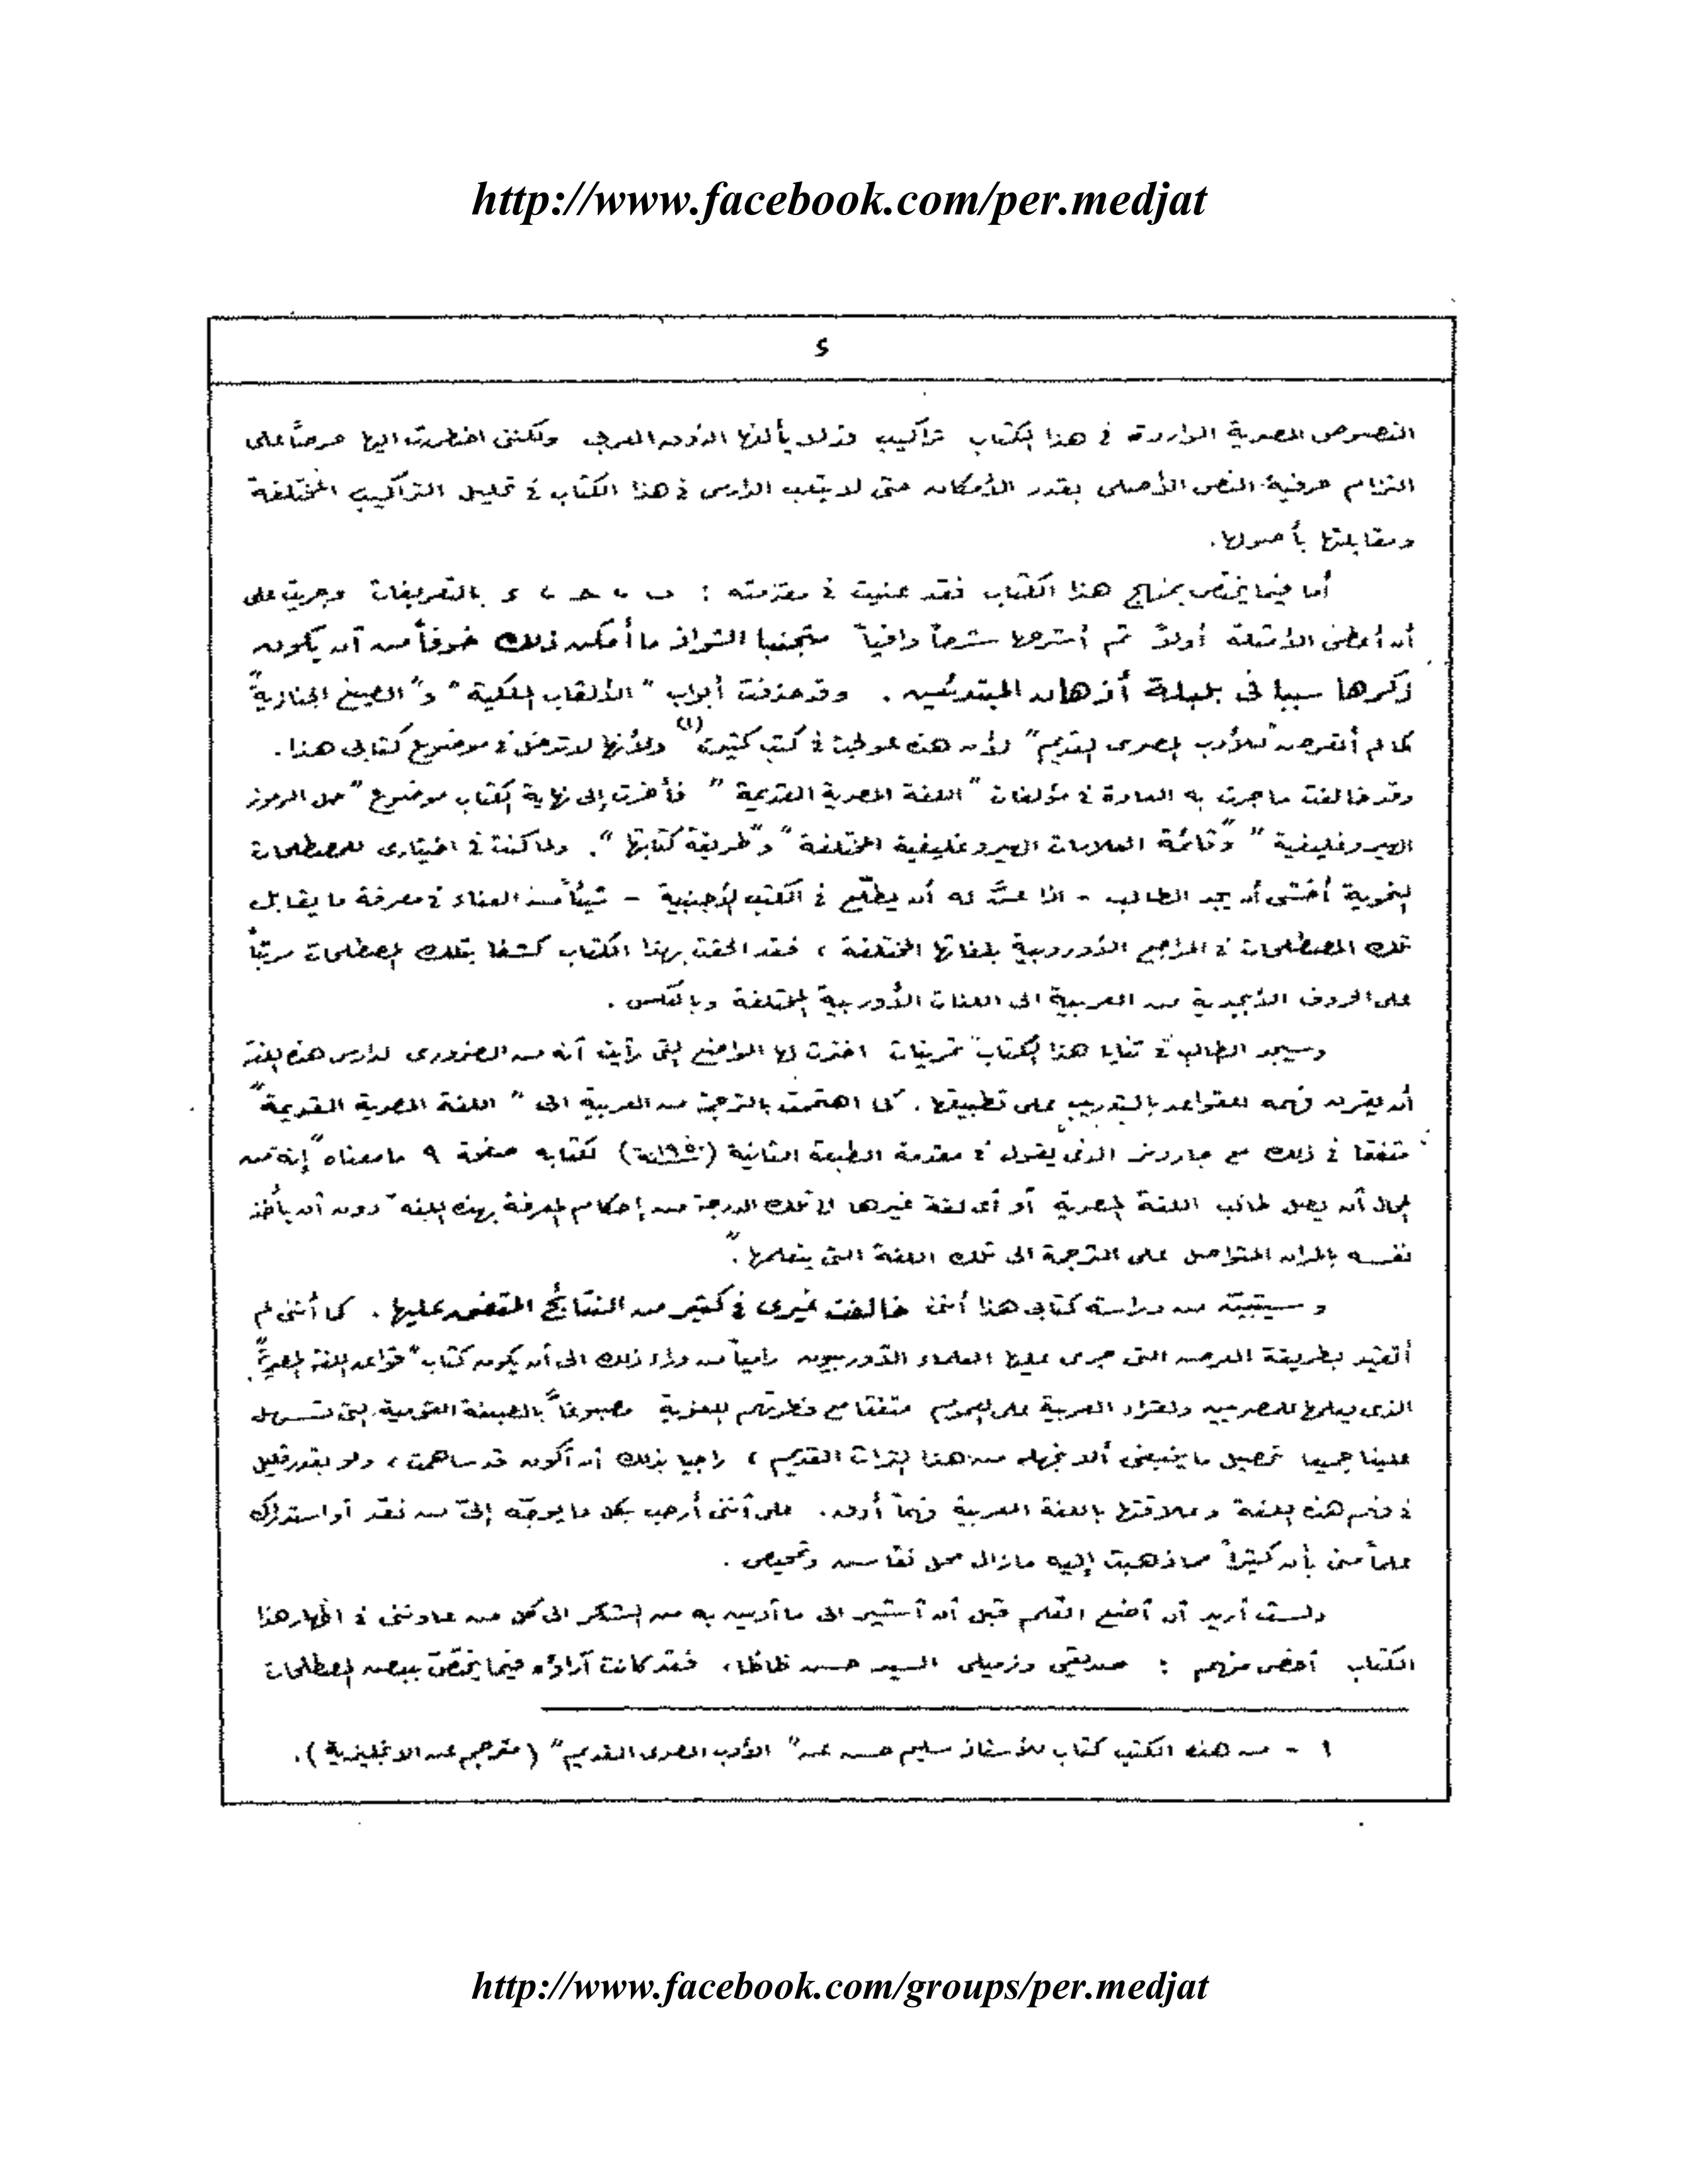 http://www.facebook.com/per.medjat
د
النصوص المصرية الواردة فى هذا الكتاب تراكيب قد لا يألفها الذوق العربى ولكننى اضطررت اليها حرصاً على
التزام حرفية النص الأصلى بقدر الأمكان حتى لا يتعب الدارس فى هذا الكتاب فى تحليل التراكيب المختلفة
ومقابلتها بأصولها.
أما فيما يختص بمنهج هذا الكتاب فقد عنيت فى مقدمته : ب ، ج ، د بالتعريفات وجريت على
أن أعطى الأمثلة أولاً ثم أشرحها شرحاً وافياً متجنبا الشواذ ما أمكن ذلك خوفاً من أن يكون
ذكرها سببا فى بلبلة أذهان المبتدئين . وقد حذفت أبواب " الألقاب الملكية " و" الصيغ الجنازية"
كما لم أتعرض "للأدب المصرى القديم" لأن هذه عولجت فى كتب كثيرة(١) ولأنها لا تدخل فى موضوع كتابى هذا .
وقد خالفت ما جرت به العادة فى مؤلفات " اللغة المصرية القديمة " فأخرت إلى نهاية الكتاب موضوع " حل الرموز
الهيروغليفية " و"قائمة العلامات الهيروغليفية المختلفة" و"طريقة كتابتها". ولما كنت فى اختيارى للمصطلحات
النحوية أخشى أن يجد الطالب - اذا عنَّ له أن يطلع فى الكتب الأجنبية - شيئاً من العناء فى معرفة ما يقابل
تلك المصطلحات فى المراجع الأوروبية بلغاتها المختلفة ، فقد الحقت بهذا الكتاب كشفا بتلك المصطلحات مرتباً
على الحروف الأبجدية من العربية الى اللغات الأوربية المختلفة وبالعكس .
وسيجد الطالب فى ثنايا هذا الكتاب تمرينات اخترت لها المواضع التى رأيت أنه من الضرورى لدارس هذه اللغة
أن يقرن فهمه للقواعد بالتدريب على تطبيقها . كما اهتممت بالترجمة من العربية الى " اللغة المصرية القديمة"
متفقا فى ذلك مع جاردنر الذى يقول فى مقدمة الطبعة الثانية (١٩٥٠) لكتابه صفحة ٩ ما معناه "إنه من
المحال أن يصل طالب اللغة المصرية أو أى لغة غيرها الى تلك الدرجة من إحكام المعرفة بهذه اللغة دون أن يأخذ
نفسه بالمران المتواصل على الترجمة الى تلك اللغة التى يتعلمها".
وسيتبين من دراسة كتابى هذا أننى خالفت غيرى فى كثير من النتائج المتفق عليها . كما أننى لم
أتقيد بطريقة العرض التى جرى عليها العلماء الأوربيون رامياً من وراء ذلك الى أن يكون كتاب "قواعد اللغة المصرية"
الذى يعلمها للمصريين ولقراء العربية على العموم متفقا مع فطرتهم اللغوية مصبوغاً بالصبغة القومية التى تسهل
علينا جميعا تحصيل ما ينبغى ألا نجهله من هذا التراث القديم ، راجيا بذلك أن أكون قد ساهمت ، ولو بقدر قليل
فى فهم هذه اللغة وعلاقتها باللغة العربية فهماً أدق . على أننى أرحب بكل ما يوجّه إلىّ من نقد أو استدراك
علماً منى بأن كثيراً مما ذهبت إليه مازال محل نقاش وتمحيص .
ولست أريد أن أضع القلم قبل أن أشير الى ما أدين به من الشكر الى كل من عاوننى فى اظهار هذا
الكتاب أخص منهم : صديقى وزميلى السيد حسن ظاظا ، فقد كانت آراؤه فيما يختص ببعض المصطلحات
١ - من هذه الكتب كتاب للأستاذ سليم حسن عن " الأدب المصرى القديم" (مترجم عن الانجليزية) .
http://www.facebook.com/groups/per.medjat